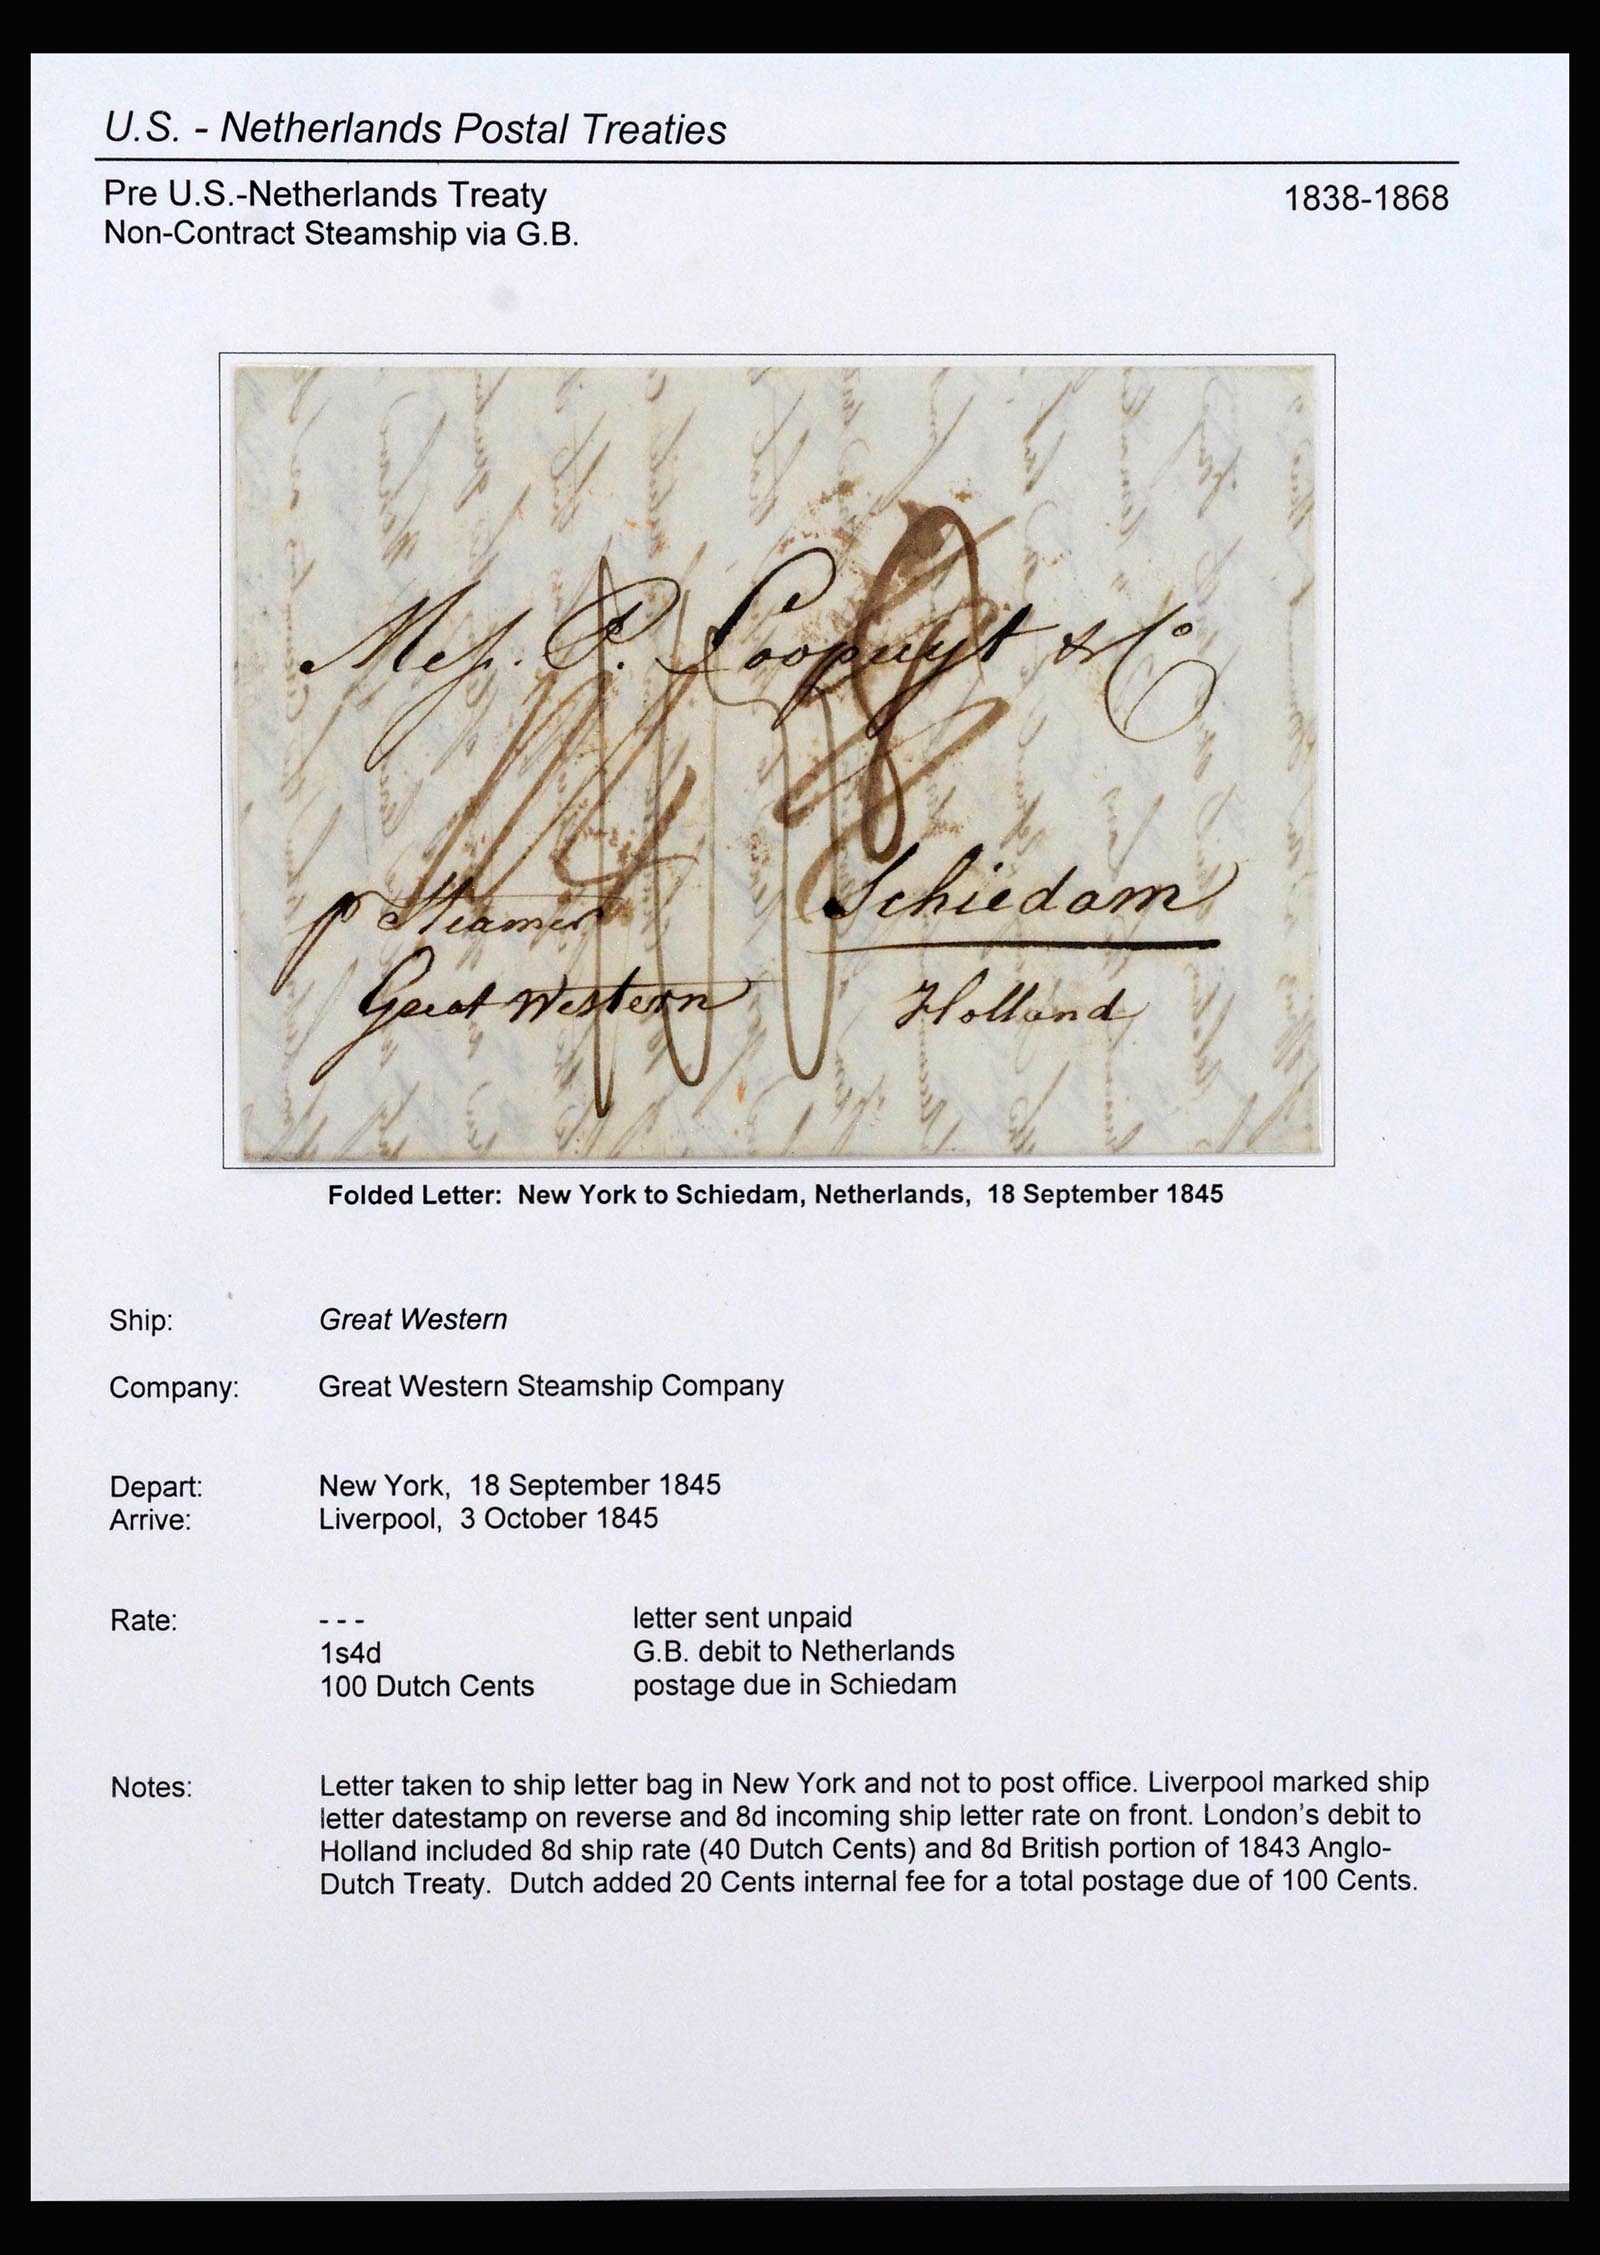 U.S. - Netherlands Postal Treaties
Pre U.S.-Netherlands Treaty 1838-1868
Non-Contract Steamship via G.B.
Mess. P. Loopuyt & Co
p Steamer
Schiedam
Great Western
Holland
Folded Letter: New York to Schiedam, Netherlands, 18 September 1845
Ship: Great Western
Company: Great Western Steamship Company
Depart: New York, 18 September 1845
Arrive: Liverpool, 3 October 1845
Rate: - - - letter sent unpaid
1s4d G.B. debit to Netherlands
100 Dutch Cents postage due in Schiedam
Notes: Letter taken to ship letter bag in New York and not to post office. Liverpool marked ship
letter datestamp on reverse and 8d incoming ship letter rate on front. London's debit to
Holland included 8d ship rate (40 Dutch Cents) and 8d British portion of 1843 Anglo-
Dutch Treaty. Dutch added 20 Cents internal fee for a total postage due of 100 Cents.